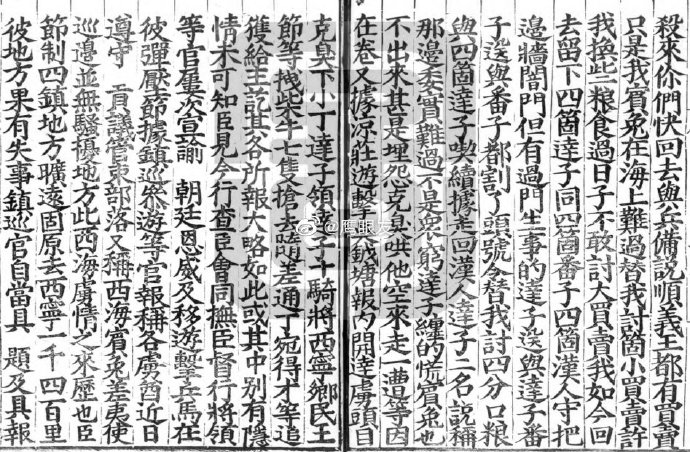 殺來你們快回去與兵備說順義王都有買賣
只是我賓兔在海上難過替我討箇小買賣許
我換些粮食過日子不敢討大買賣我如今回
去留下四箇達子同四箇番子四箇漢人守把
邊墻閤門但有過門生事的達子送與達子番
子送與番子都割了頭號令替我討四分口粮
與四箇達子喫續據走回漢人達子二名說稱
那邊委實難過不是衆窮達子纏的慌賓兔也
不出來甚是埋怨克臭哄他空來走一遭等因
在卷又據凉莊遊擊鉞塘報內開達虜頭目
克臭下小丁達子領達子十騎將西寧鄉民王
節等柴牛七隻搶去隨差通丁宛得才等追
獲給主訖其各所報大略如此或其中別有隱
情未可知臣見今行查臣會同撫臣督行將領
等官屢次宣諭 朝廷恩威及移遊擊兵馬在
彼彈壓節據鎮巡叅遊等官報稱各虜酋近日
遵守 貢議管束部落又稱西海賓兔差夷使
巡邊並無騷擾地方此西海虜情之來歷也臣
節制四鎮地方曠遠固原去西寧一千四百里
彼地方果有失事鎮巡官自當具 題及具報